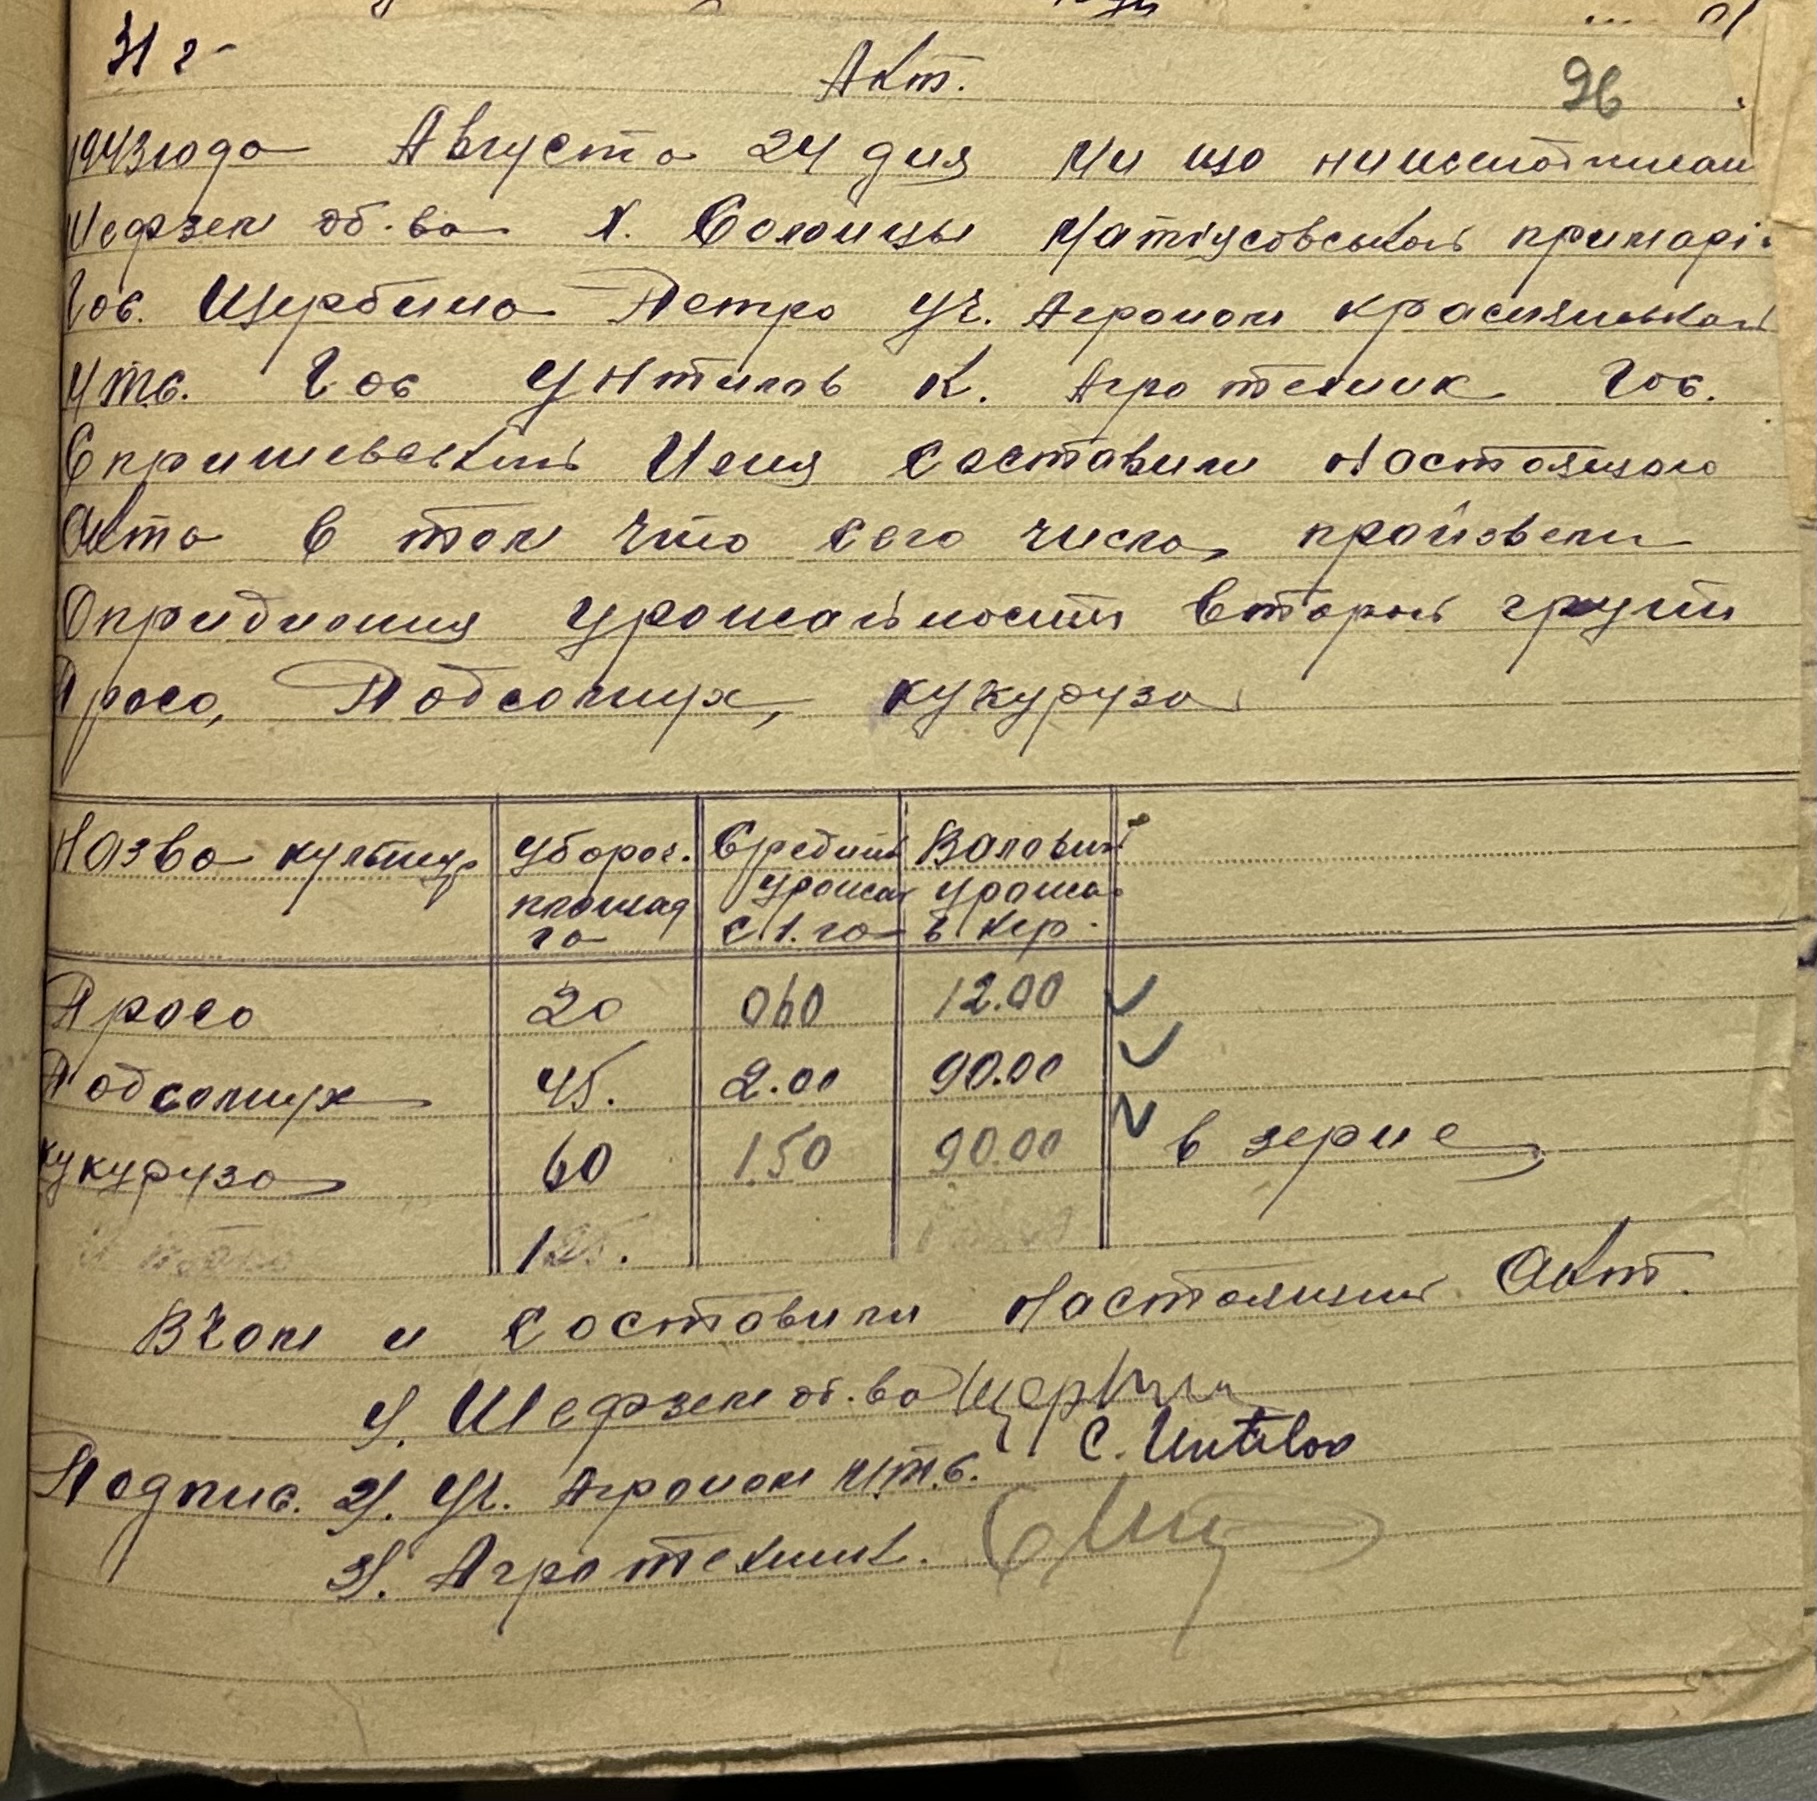 31 г
Акт.
96
1943 года Августа 24 дня Ми що нишеподписаи
Шефзем об-ва Х. Солонцы Матіусовськой примарі.
Гос. Щербина Петро Уч. Агроном Краснянськой
М.т.с. Гос Унтилов К. Агротехник Гос.
Женя Составили Настоящого
Акта в том что сего числа, произвели
Опридиления урожайности второй групи
Просо, Подсолнух, кукуруза
Назва культур | Убороч. площад га | Средний урожай с 1. га | Валовый урожа в кер.
Просо 20 060 12.00 ✓
Подсолнух 45. 2.00 90.00 ✓
кукуруза 60 1.50 90.00 ✓ в зерне
Итого 125.
В чом и составили Настоящий Акт.
1/. Шефзем об.ва
Подпис. 2/. Уч. Агроном М.т.с. C. Untilov
3/. Агротехник.